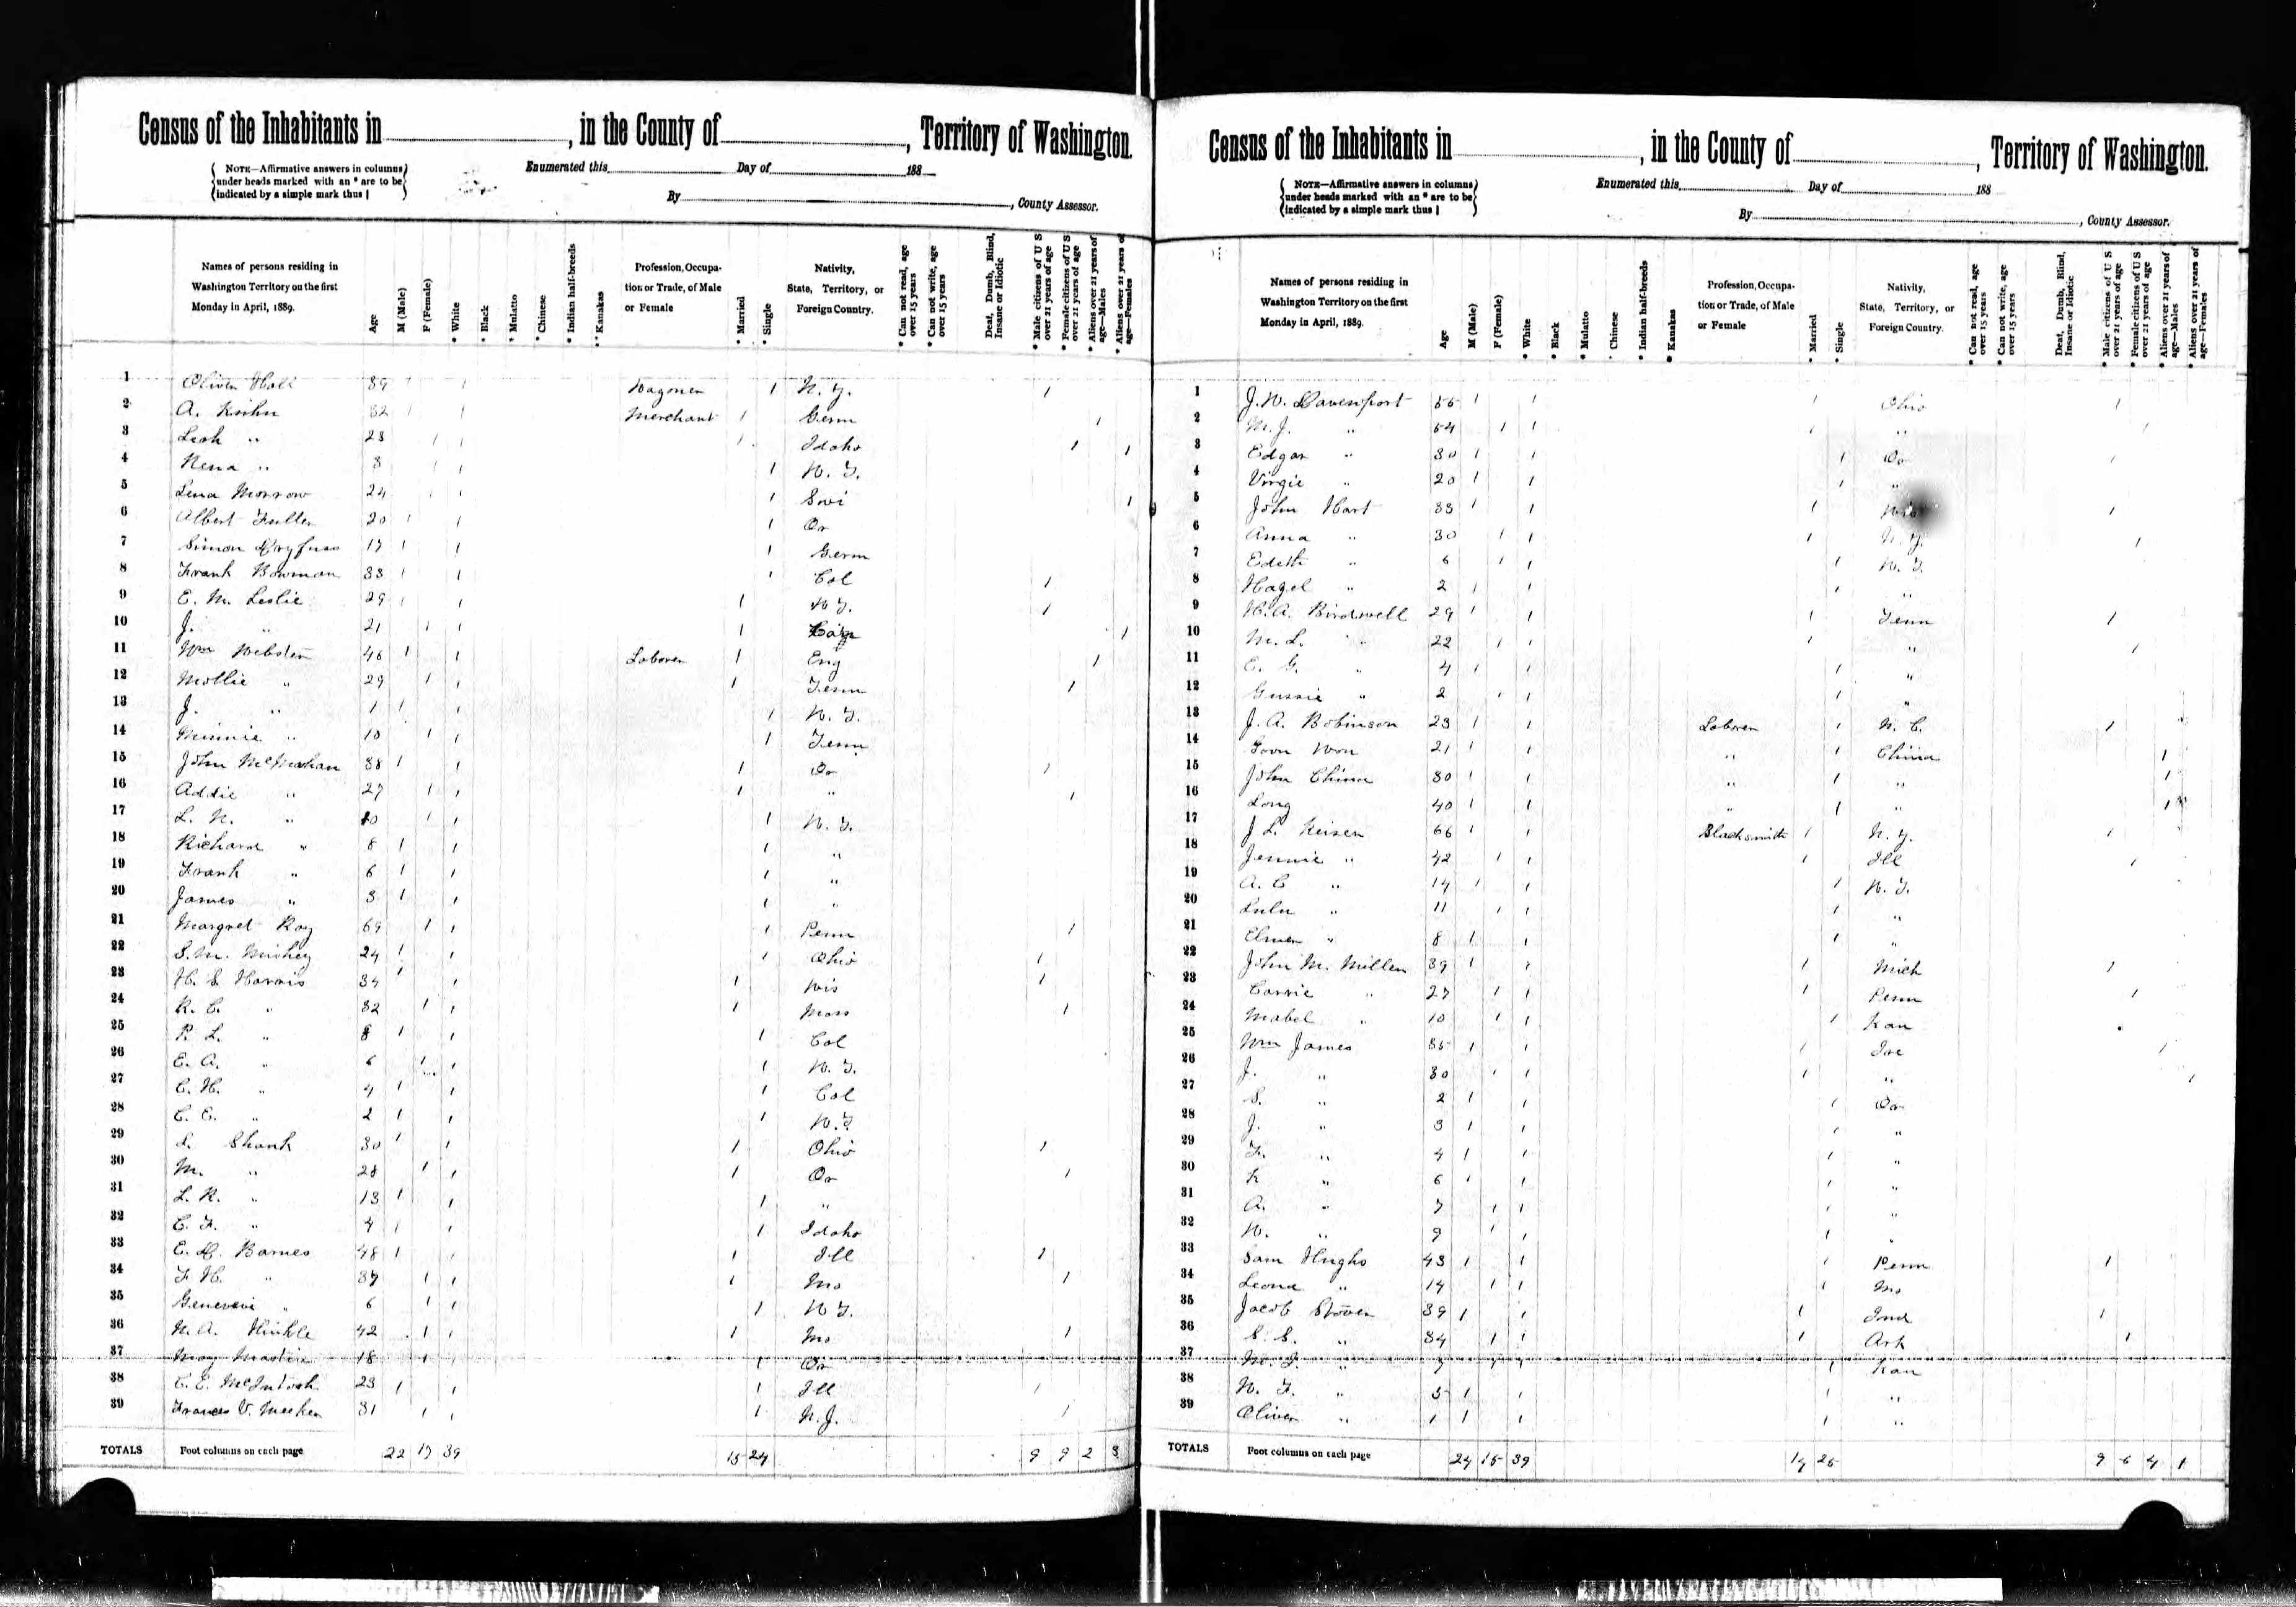 Census of the Inhabitants in, in the County of, Territory of Washington.
NOTE—Affirmative answers in columns under heads marked with an * are to be indicated by a simple mark thus |
Enumerated this Day of 188
By, County Assessor.
Names of persons residing in Washington Territory on the first Monday in April, 1889.
Age
M (Male)
F (Female)
* White
* Black
* Mulatto
* Chinese
* Indian half-breeds
* Kanakas
Profession, Occupation or Trade, of Male or Female
* Married
* Single
Nativity, State, Territory, or Foreign Country.
* Can not read, age over 15 years
* Can not write, age over 15 years
Deaf, Dumb, Blind, Insane or Idiotic
* Male citizens of U S over 21 years of age
* Female citizens of U S over 21 years of age
* Aliens over 21 years of age—Males
* Aliens over 21 years of age—Females
1 Oliver Hall 39 | | | N. Y. |
2 A. Kuhn 32 | | Merchant | Germ |
3 Leah " 28 | | | Idaho | |
4 Rena " 3 | | | W. T.
5 Lena Morrow 24 | | | Swi |
6 Albert Fuller 20 | | | Or
7 Simon Dryfuss 17 | | | Germ
8 Frank Bowman 33 | | | Col |
9 E. M. Leslie 29 | | | |
10 J. " 21 | | | |
11 Wm Webster 46 | | Laborer | Eng |
12 Mollie " 29 | | | Tenn |
13 J. " 1 | | | W. T.
14 Minnie " 10 | | | Tenn
15 John McMahan 38 | | | Or |
16 Addie " 27 | | | " |
17 L. N. " 10 | | | W. T.
18 Richard " 8 | | | "
19 Frank " 6 | | | "
20 James " 3 | | | "
21 Margret Ray 69 | | | Penn |
22 S. M. Mickey 24 | | | Ohio |
23 H. S. Harris 34 | | | Wis |
24 R. C. " 32 | | | Mass |
25 R. L. " 8 | | | Col
26 E. A. " 6 | | | W. T.
27 C. H. " 4 | | | Col
28 C. C. " 2 | | | W. T.
29 Shank 30 | | | Ohio |
30 M. " 28 | | | Or |
31 L. R. " 13 | | | "
32 C. F. " 4 | | | Idaho
33 E. D. Barnes 48 | | | Ill |
34 F. H. " 37 | | | Mo |
35 Genevevi " 6 | | | W T.
36 N. A. Hinkle 42 | | | Mo |
37 May 18 | | | Or
38 C. E. McIntosh 23 | | | Ill |
39 Frances V. Meeker 31 | | | N. J. |
TOTALS Foot columns on each page 22 17 39 15 24 9 9 2 3
Census of the Inhabitants in, in the County of, Territory of Washington.
NOTE—Affirmative answers in columns under heads marked with an * are to be indicated by a simple mark thus |
Enumerated this Day of 188
By, County Assessor.
Names of persons residing in Washington Territory on the first Monday in April, 1889.
Age
M (Male)
F (Female)
* White
* Black
* Mulatto
* Chinese
* Indian half-breeds
* Kanakas
Profession, Occupation or Trade, of Male or Female
* Married
* Single
Nativity, State, Territory, or Foreign Country.
* Can not read, age over 15 years
* Can not write, age over 15 years
Deaf, Dumb, Blind, Insane or Idiotic
* Male citizens of U S over 21 years of age
* Female citizens of U S over 21 years of age
* Aliens over 21 years of age—Males
* Aliens over 21 years of age—Females
1 J. W. Davenport 55 | | | Ohio |
2 M. J. " 54 | | | " |
3 Edgar " 30 | | | Or |
4 Virgie " 20 | | | "
5 John Hart 33 | | | |
6 Anna " 30 | | | N. Y. |
7 Edeth " 6 | | | W. T.
8 Hazel " 2 | | | "
9 Birdwell 29 | | | Tenn |
10 M. L. " 22 | | | " |
11 C. G. " 4 | | | "
12 Gussie " 2 | | | "
13 J. A. Robinson 23 | | Laborer | N. C. |
14 Goon Won 21 | | " | China |
15 John China 30 | | " | " |
16 Long 40 | | " | " |
17 J L. Keiser 66 | | Blacksmith | N. Y. |
18 Jennie " 42 | | | Ill |
19 A. C " 14 | | | W. T.
20 Lulu " 11 | | | "
21 Elmer " 8 | | | "
22 John M. Miller 39 | | | Mich |
23 Carrie " 27 | | | Penn |
24 Mabel " 10 | | | Kan
25 Wm James 35 | | | Ire |
26 J. " 30 | | | " |
27 S. " 2 | | | Or
28 J. " 3 | | | "
29 F. " 4 | | | "
30 K " 6 | | | "
31 A. " 7 | | | "
32 W. " 9 | | | "
33 Sam Hughs 43 | | | Penn |
34 Leona " 14 | | | Mo
35 Jacob Stover 39 | | | Ind |
36 S. S. " 34 | | | Ark |
37 " 7 | | | Kan
38 W. F. " 3 | | | "
39 Oliver " 1 | | | "
TOTALS Foot columns on each page 24 15 39 14 25 9 6 4 1